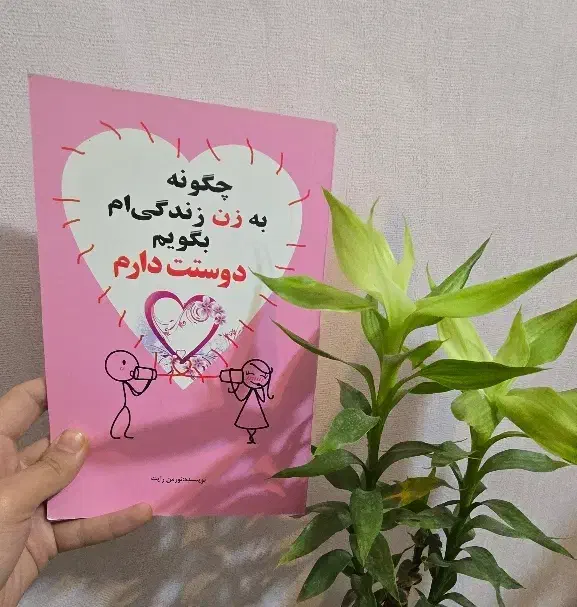 چگونه
به زن زندگی‌ام
بگویم
دوستت دارم
نویسنده:نورمن رایت